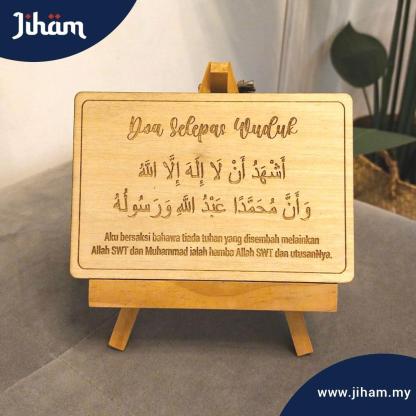 Jihäm
Doa Selepas Wuduk
أَشْهَدُ أَنْ لَا إِلَهَ إِلَّا اللَّهُ
وَأَنَّ مُحَمَّدًا عَبْدُ اللَّهِ وَرَسُولُهُ
Aku bersaksi bahawa tiada tuhan yang disembah melainkan
Allah SWT dan Muhammad ialah hamba Allah SWT dan utusanNya.
www.jiham.my